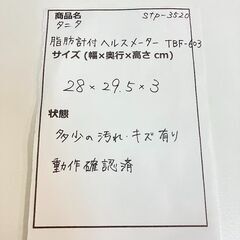 商品名 stp-3520
タニタ
脂肪計付ヘルスメーター TBF-603
サイズ(幅×奥行×高さ cm)
28×29.5×3
状態
多少の汚れ・キズ有り
動作確認済